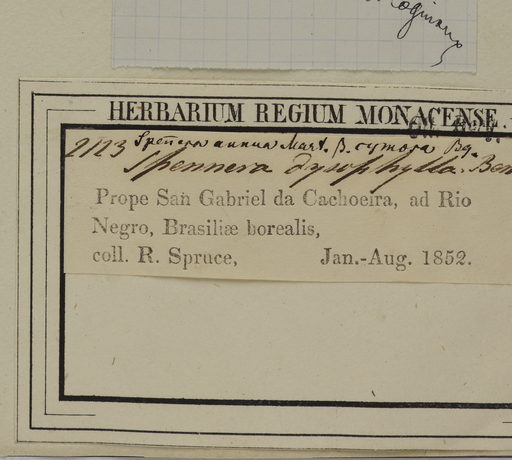 HERBARIUM REGIUM MONACENSE.
Spennera annua Mart. β. cymosa
2123 Spennera dysophylla. Ben
Prope San Gabriel da Cachoeira, ad Rio
Negro, Brasiliæ borealis,
coll. R. Spruce, Jan.-Aug. 1852.